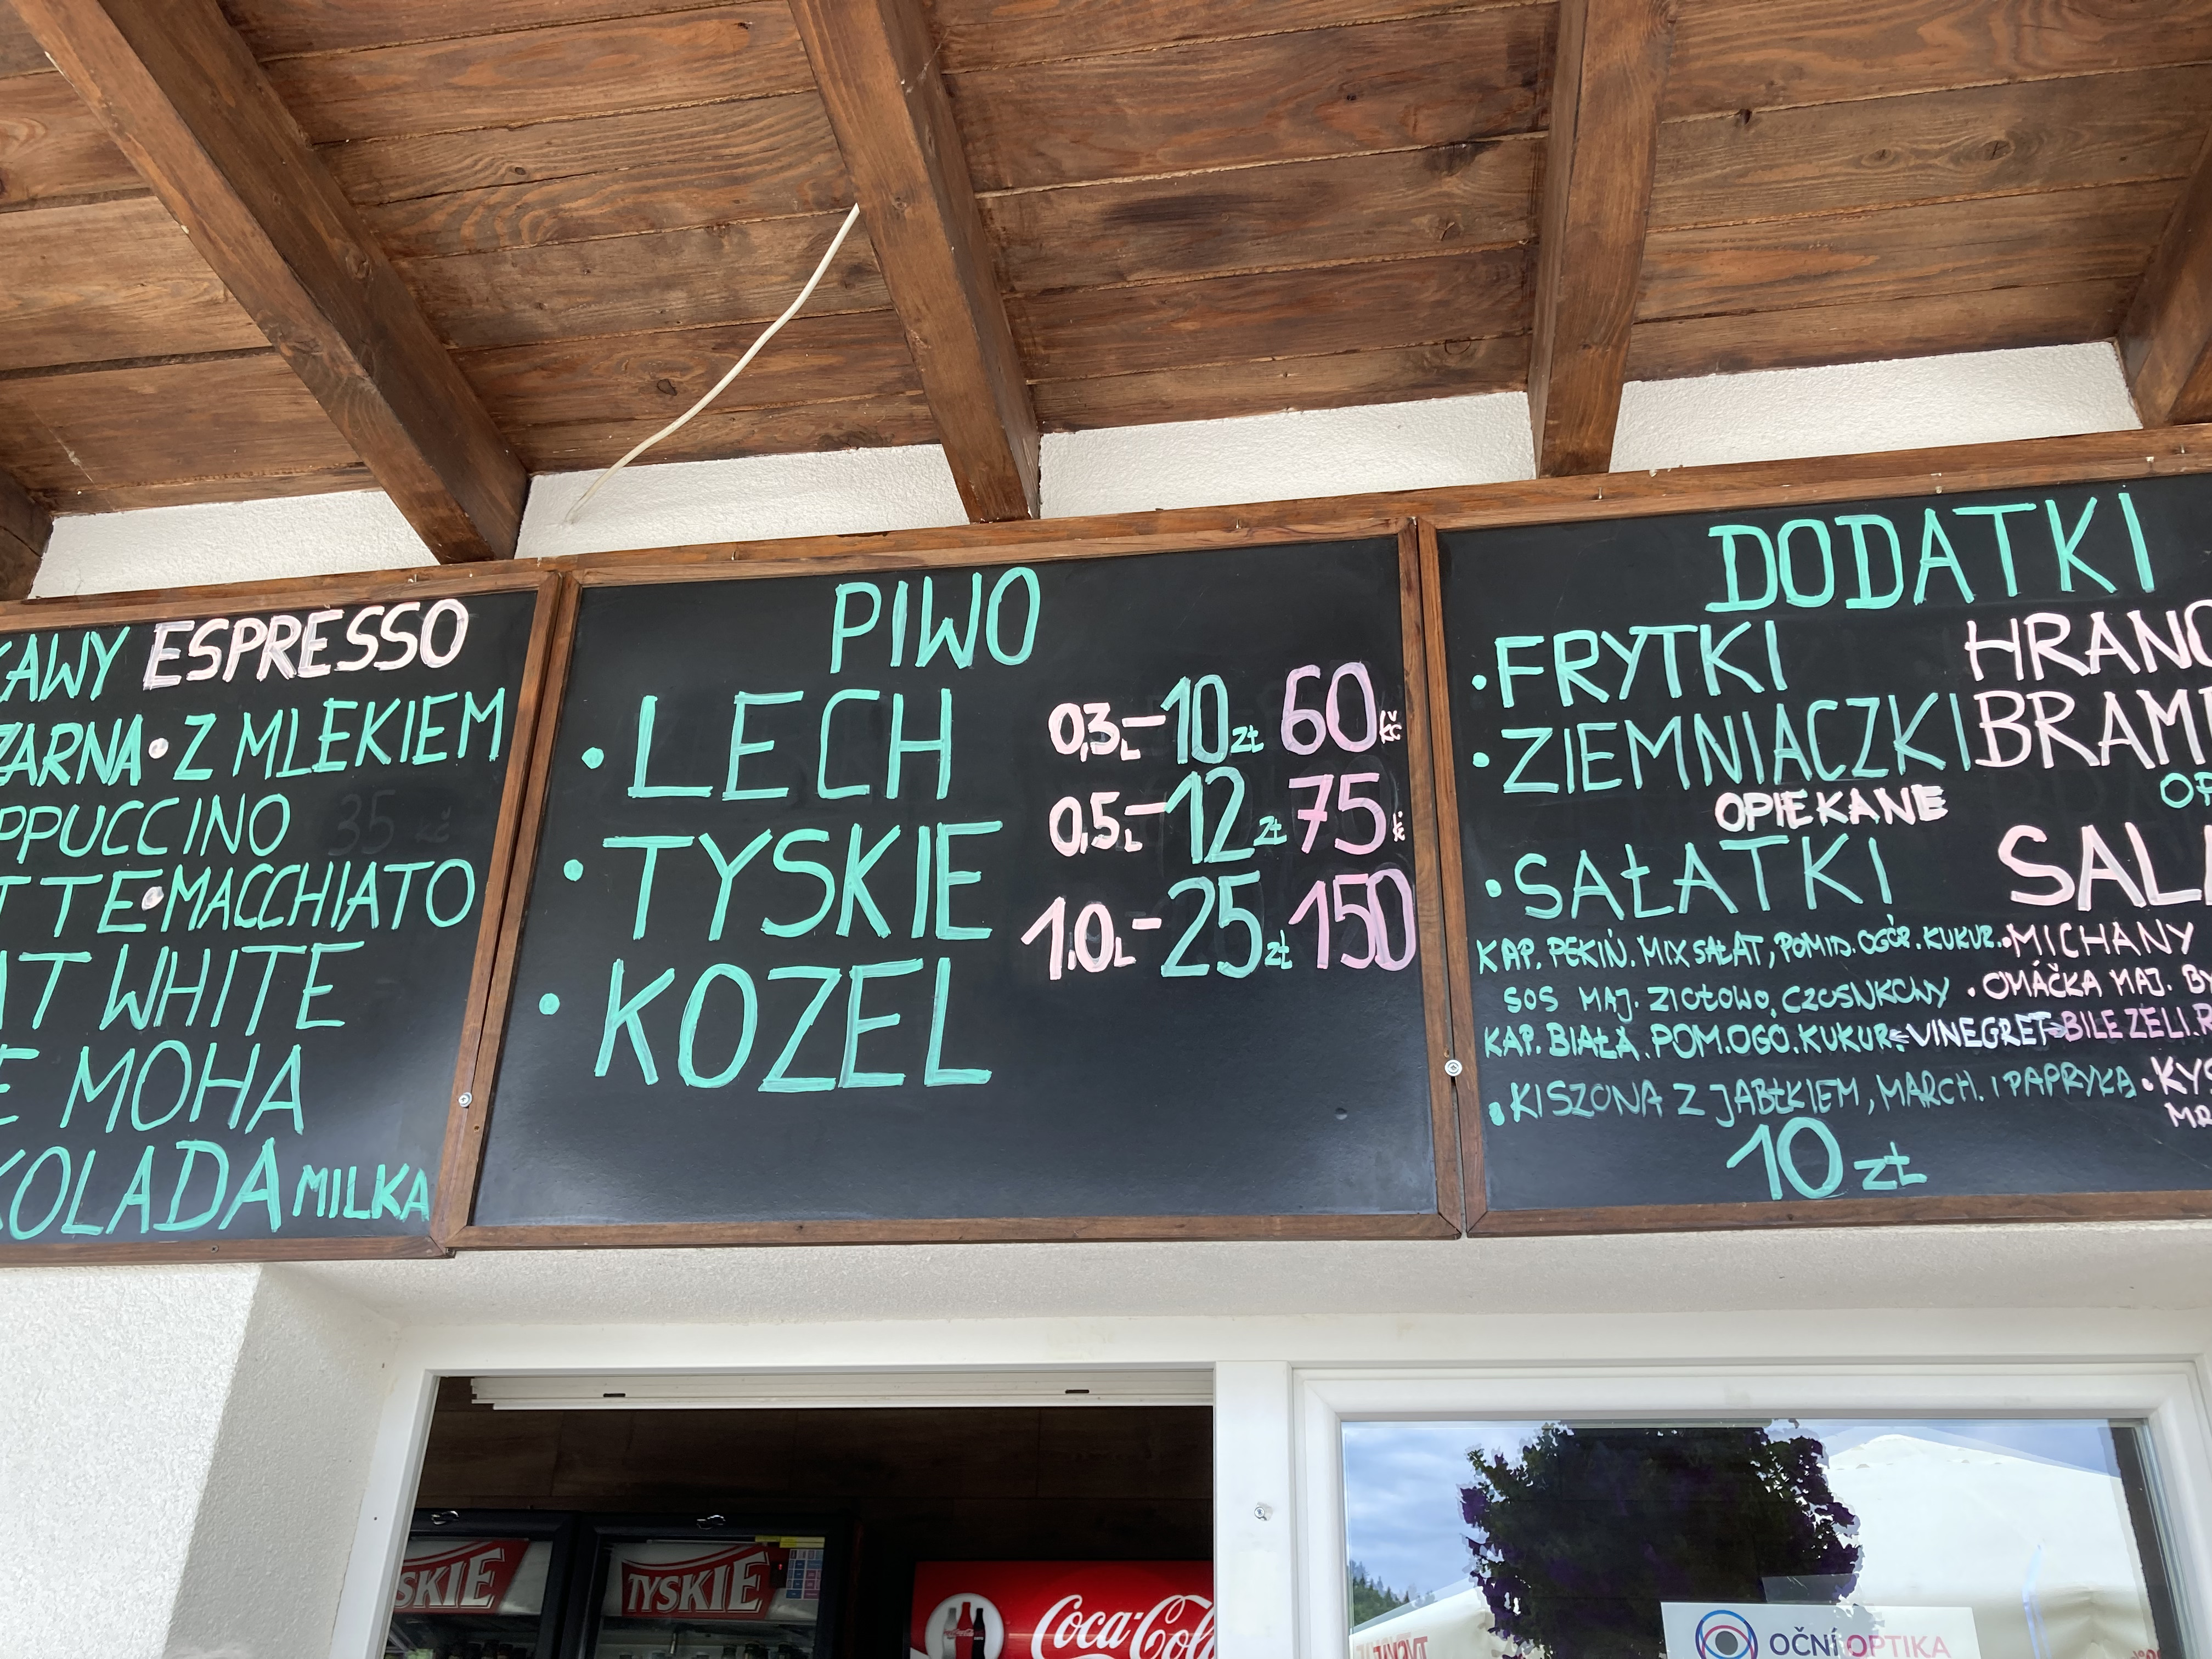 KAWY ESPRESSO
ZARNA • Z MLEKIEM
PPUCCINO 35 Kč
TTE • MACCHIATO
AT WHITE
E MOHA
KOLADA MILKA
PIWO
• LECH 0,3L – 10 zł 60 Kč
• TYSKIE 0,5L – 12 zł 75 Kč
• KOZEL 1.0L – 25 zł 150
DODATKI
• FRYTKI HRANO
• ZIEMNIACZKI BRAM
OPIEKANE OP
• SAŁATKI SALA
KAP. PEKIŃ. MIX SAŁAT, POMID. OGÓR. KUKUR. • MICHANY
SOS MAJ. ZIOŁOWO, CZOSNKOWY • OMÁČKA MAJ. BY
KAP. BIAŁA. POM. OGO. KUKUR. VINEGRET BILE ZELI. R
• KISZONA Z JABŁKIEM, MARCH. I PAPRYKA • KYS
MR
10 zł
SKIE
TYSKIE
Coca-Cola
OČNÍ OPTIKA